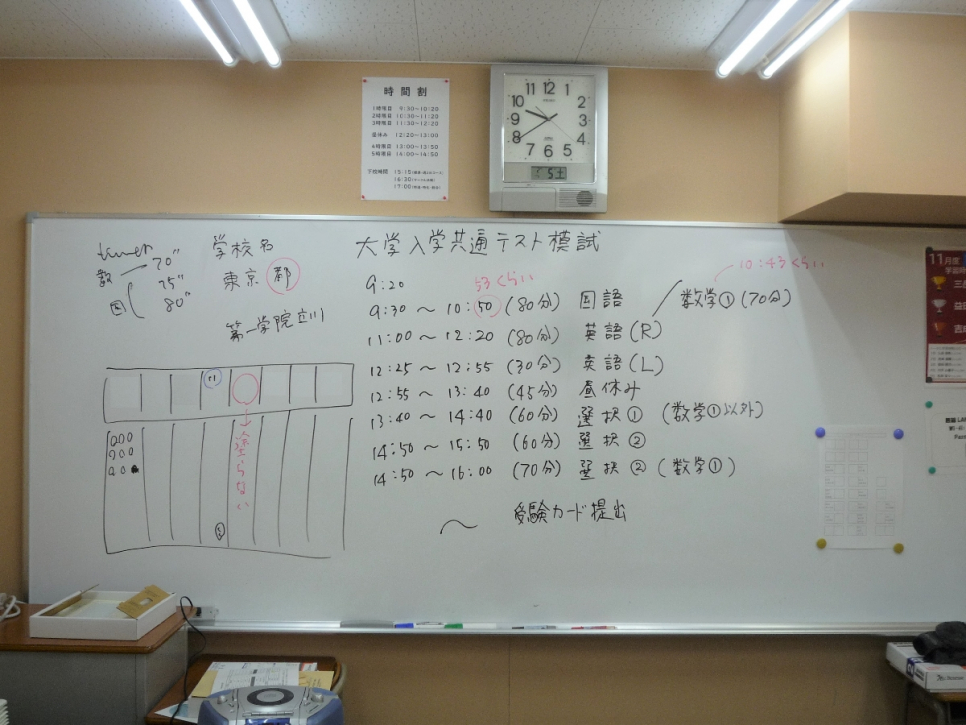 時間割
1時限目 9:30~10:20
2時限目 10:30~11:20
3時限目 11:30~12:20
昼休み 12:20~13:00
4時限目 13:00~13:50
5時限目 14:00~14:50
下校時間 15:15
16:30
17:00
11 12 1
10 2
9 3
8 4
7 6 5
5土
timer
数 70"
国 75"
80"
学校名
東京都
第一学院立川
大学入学共通テスト模試
9:20
53くらい
10:43くらい
9:30~10:50(80分) 国語 数学①(70分)
11:00~12:20(80分) 英語(R)
12:25~12:55(30分) 英語(L)
12:55~13:40(45分) 昼休み
13:40~14:40(60分) 選択①(数学①以外)
14:50~15:50(60分) 選択②
14:50~16:00(70分) 選択②(数学①)
~ 受験カード提出
塗らない
11月度